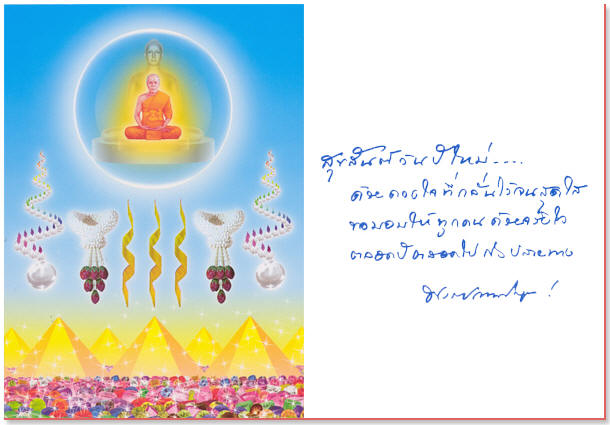 สุขสันต์วันปีใหม่....
ด้วยดวงใจที่กลั่นไว้จนสุดใส
ขอมอบให้ทุกคนด้วย
ตลอดปีตลอดไป ปลายทาง